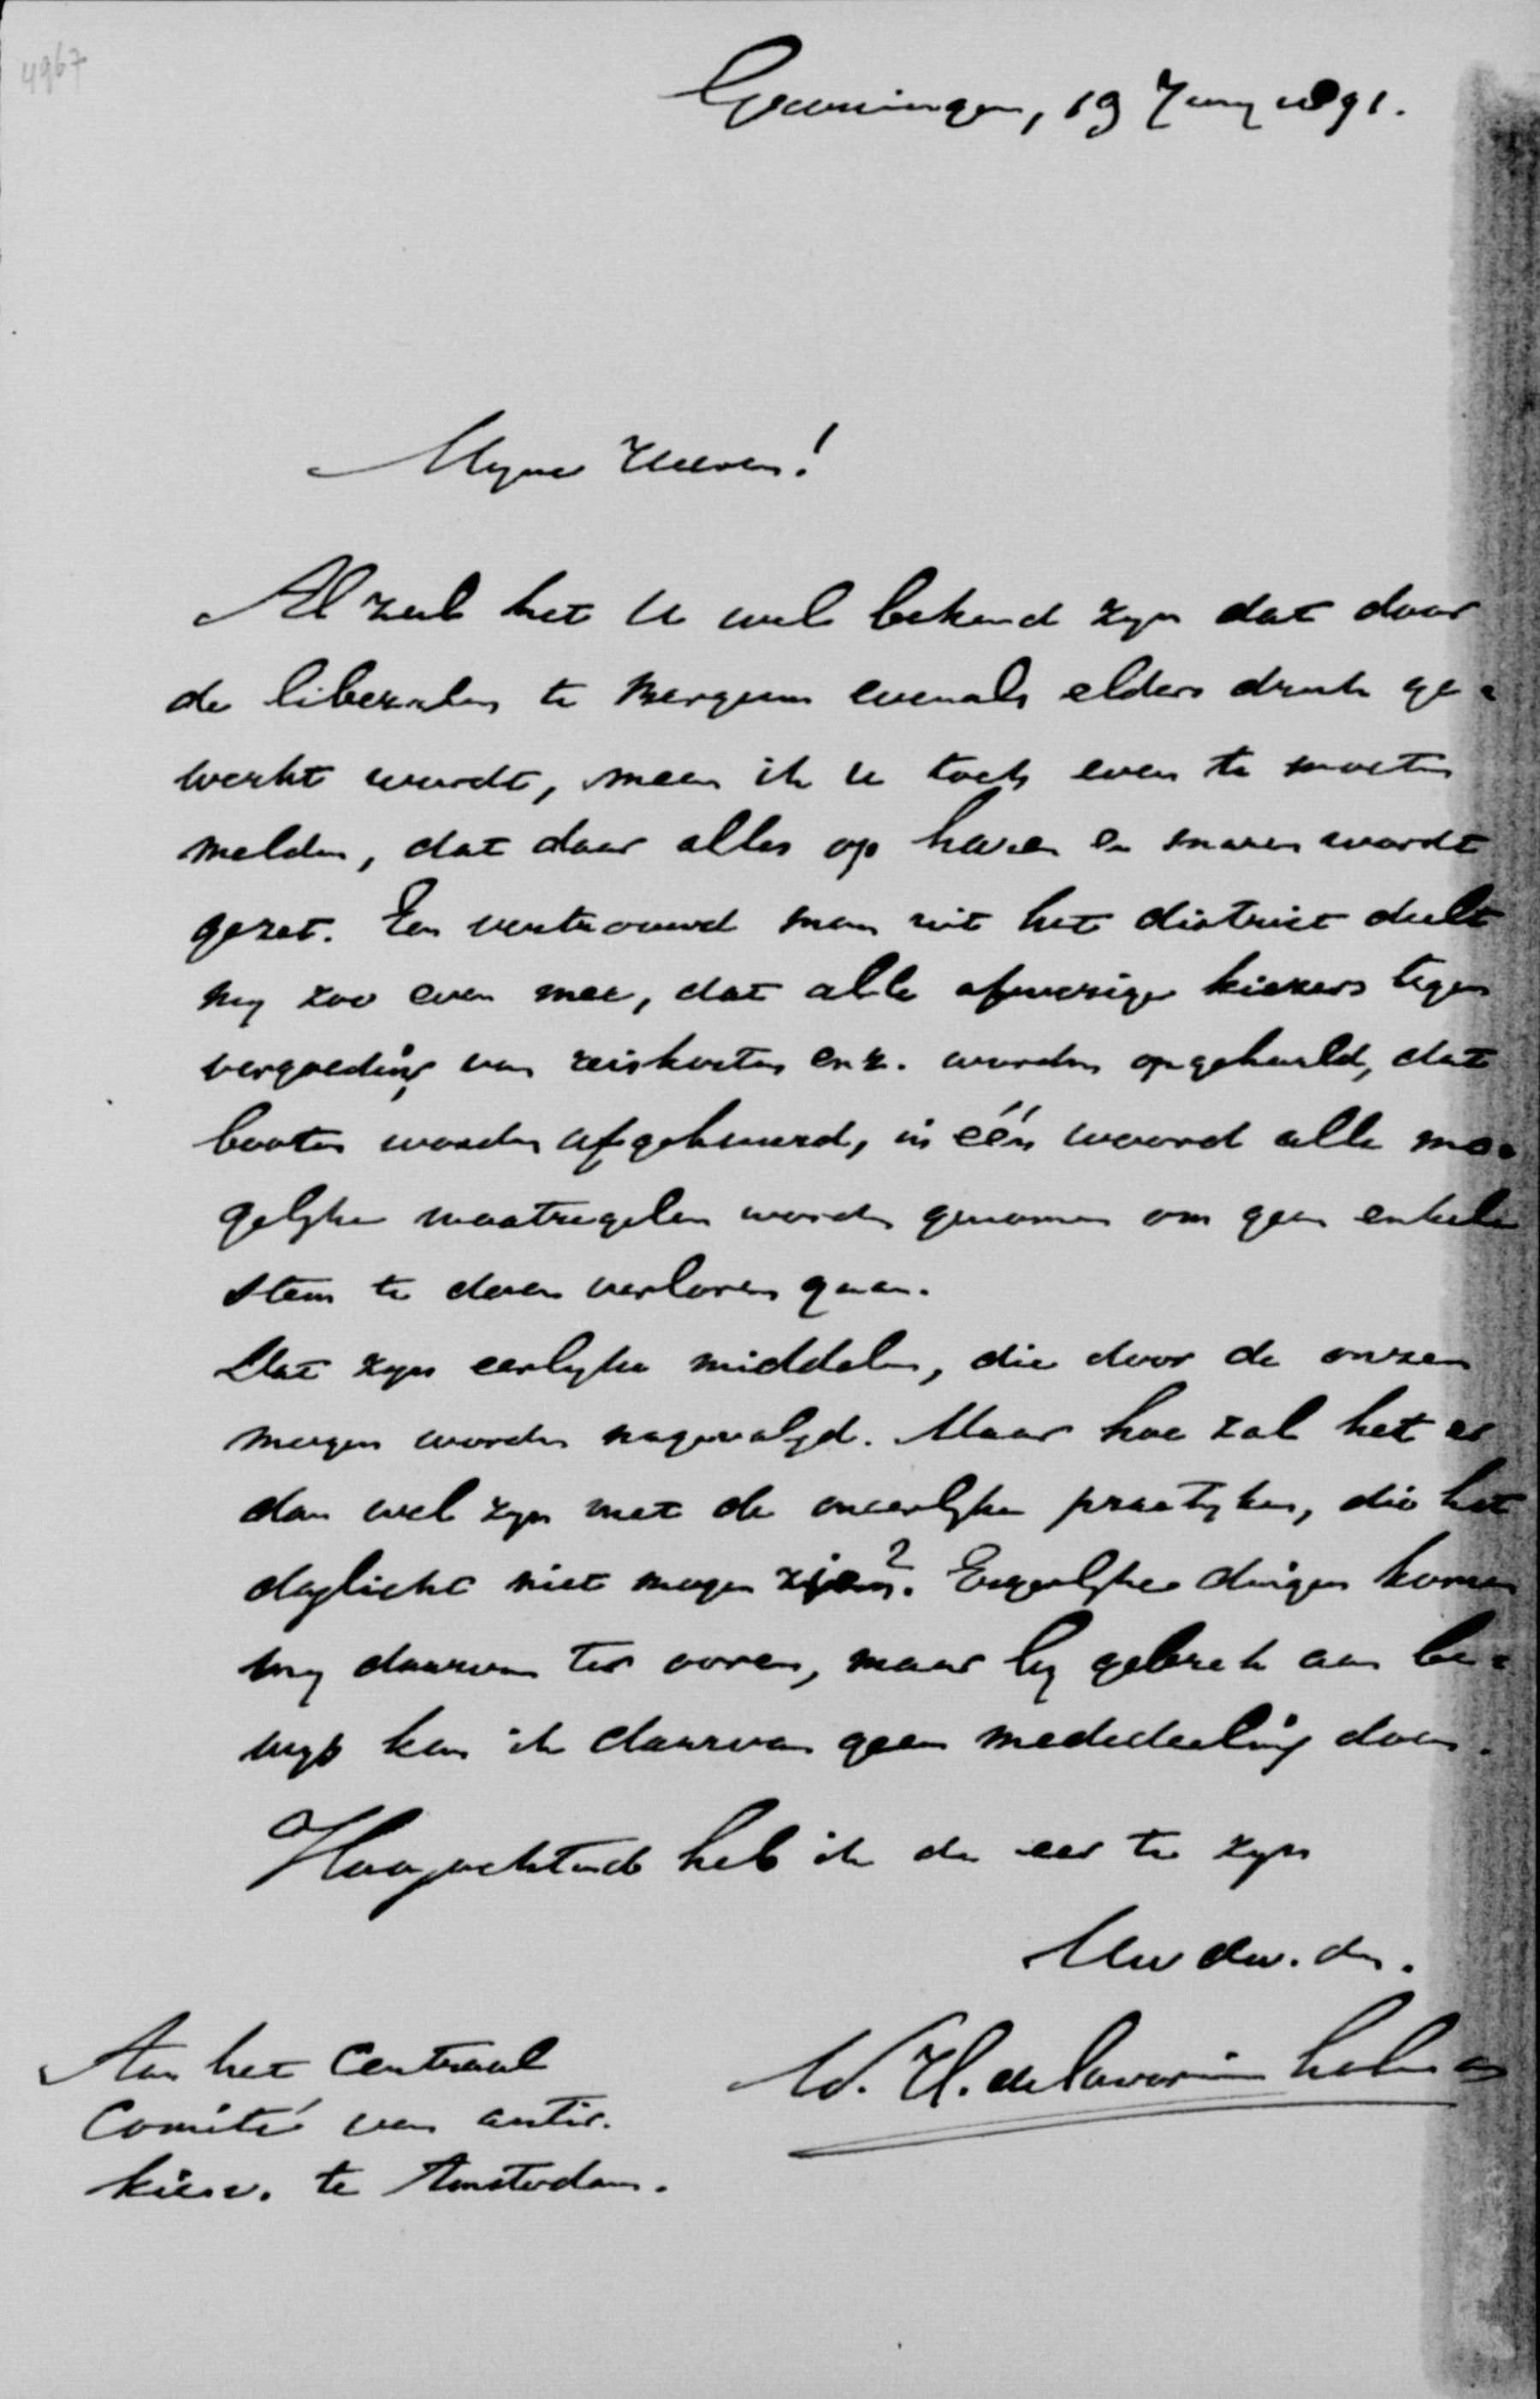 4967
Groningen, 19 Juny 1891.
Myne Heeren!
Al zal het U wel bekend zyn dat door
de liberalen te Bergum evenals elders druk ge=
werkt wordt, meen ik U toch even te moeten
melden, dat daar alles op haren en snaren wordt
gezet. Een vertrouwd man uit het district deelt
my zoo even mee, dat alle afwezige kiezers tegen
vergoeding van reiskosten enz. worden opgehaald, dat
booten worden afgehuurd, in één woord alle mo=
gelyke maatregelen worden genomen om geen enkele
stem te doen verloren gaan.
Dat zyn eerlyke middelen, die door de onzen
mogen worden nagevolgd. Maar hoe zal het er
dan wel zyn met de oneerlyke practyken, die het
daglicht niet mogen zien? Ergerlyke dingen komen
my daarvan ter ooren, maar by gebrek aan be=
wys kan ik daarvan geen mededeeling doen.
Hoogachtend heb ik de eer te zyn
Uw dw. dr.
W. H. de Savornin Lohman
Aan het Centraal
Comité van antir.
kiesv. te Amsterdam.